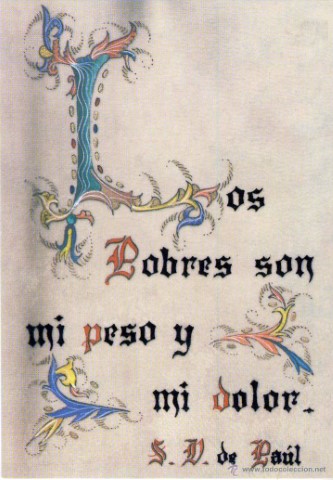 Los
Pobres son
mi peso y
mi dolor.
S. V. de Paúl
www.todocoleccion.net